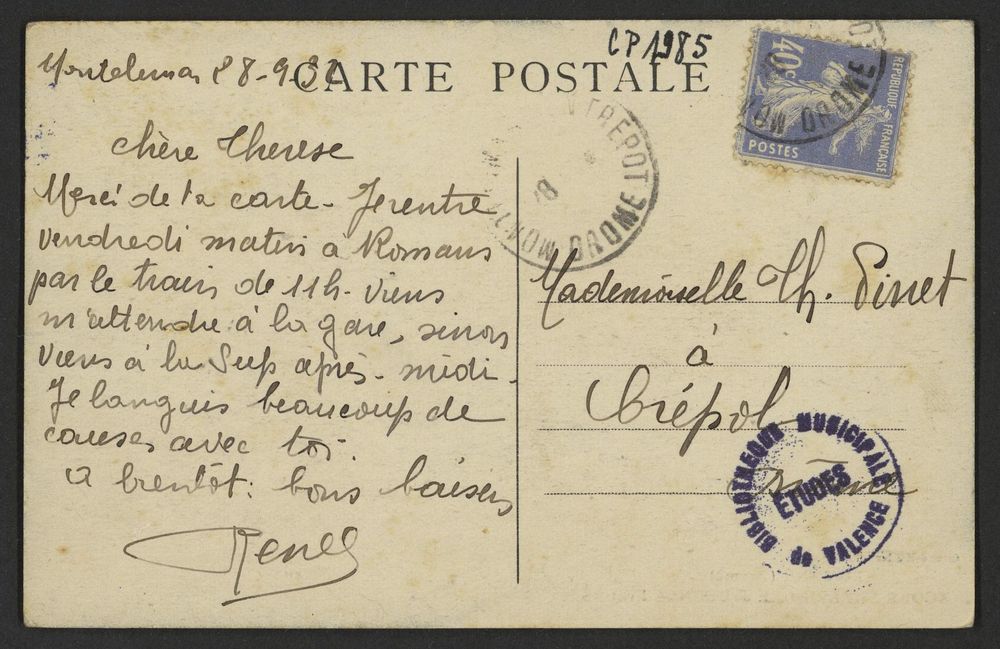 CP1985
CARTE POSTALE
chère Therese
Merci de ta carte - Je rentre
vendredi matin à Romans
par le train de 11h. viens
m'attendre à la gare, sinon
viens à la Sup après-midi.
Je languis beaucoup de
causer avec toi.
a bientôt: bons baisers
Renée
40c
REPUBLIQUE FRANÇAISE
POSTES
DROME
ENTREPOT
18
DROME
Mademoiselle Th. Pinet
à
Crépol
Drôme
BIBLIOTHEQUE MUNICIPALE
ETUDES
de VALENCE